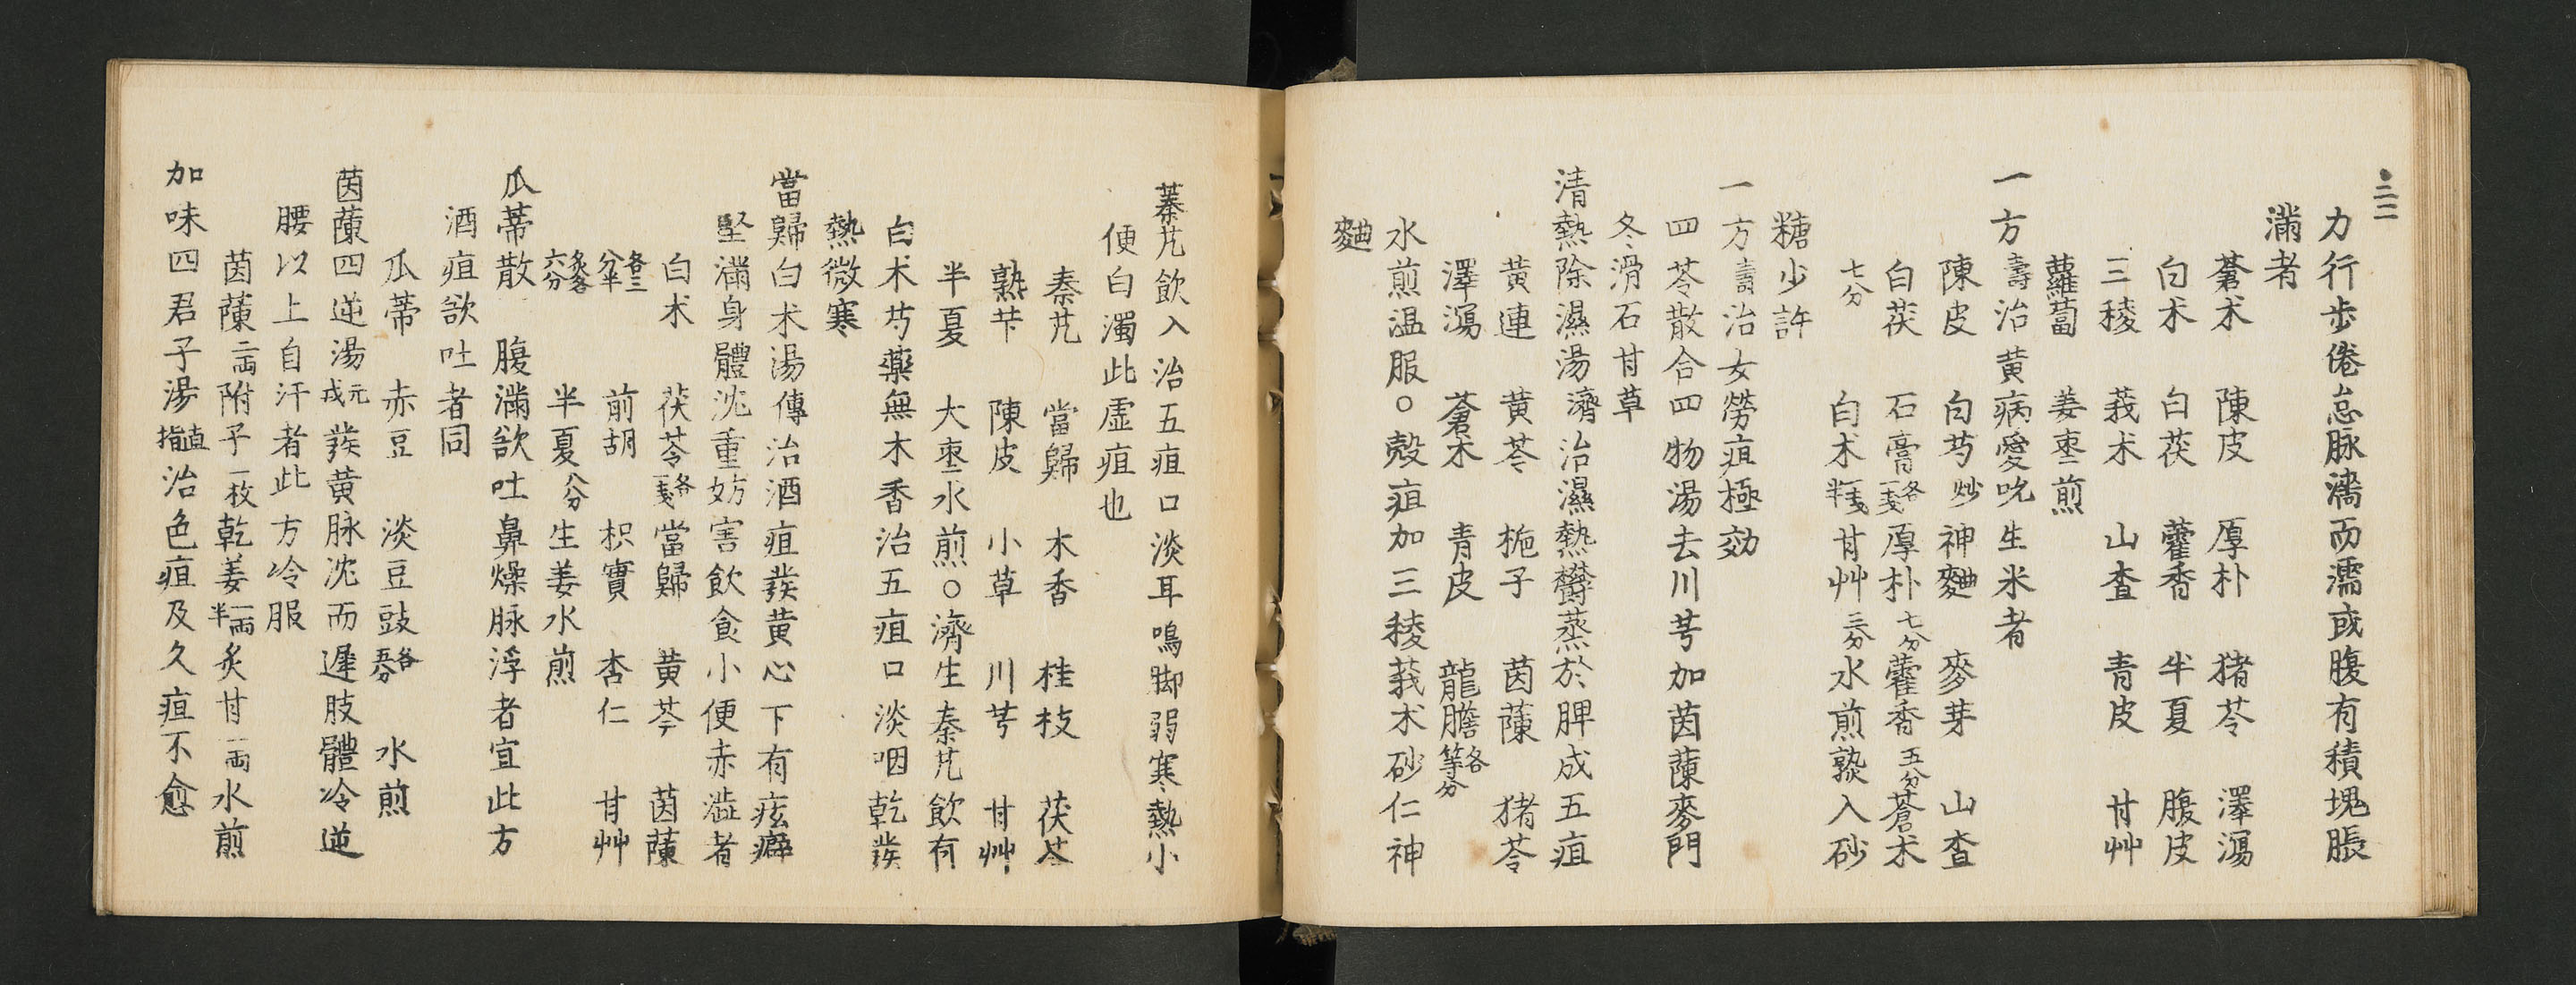 三二
力行歩倦怠脉濡而濡或腹有積塊脹
滿者
蒼朮 陳皮 厚朴 猪苓 澤瀉
白朮 白茯 藿香 半夏 腹皮
三稜 莪朮 山査 青皮 甘艸
蘿蔔 姜棗煎
一方壽治黄病愛吃生米者
陳皮 白芍炒 神麯 麥芽 山査
白茯 石膏各一戔 厚朴七分 藿香五分 蒼朮
七分 白朮一戔半 甘艸三分 水煎熟入砂
糖少許
一方壽治女勞疸極効
四苓散合四物湯去川芎加茵蔯麥門
冬滑石甘草
清熱除濕湯濟治濕熱欝蒸於脾成五疸
黄連 黄芩 梔子 茵蔯 猪苓
澤瀉 蒼朮 青皮 龍膽各等分
水煎温服○殻疸加三稜莪朮砂仁神
麯
蓁艽飲入治五疸口淡耳鳴脚弱寒熱小
便白濁此虚疸也
秦艽 當歸 木香 桂枝 茯苓
熟芐 陳皮 小草 川芎 甘艸
半夏 大棗水煎○濟生秦艽飲有
白朮芍藥無木香治五疸口淡咽乾發
熱微寒
當歸白朮湯傳治酒疸發黄心下有痃癖
堅滿身體沈重妨害飲食小便赤澁者
白朮 茯苓各一戔 當歸 黄芩 茵蔯
各三分半 前胡 枳實 杏仁 甘艸
炙各六分 半夏八分 生姜水煎
瓜蒂散 腹滿欲吐鼻燥脉浮者宜此方
酒疸欲吐者同
瓜蒂 赤豆 淡豆豉各五分 水煎
茵蔯四逆湯元戎發黄脉沈而遲肢體冷逆
腰以上自汗者此方冷服
茵蔯二両附子一枚乾姜一両半炙甘一両水煎
加味四君子湯直指治色疸及久疸不愈